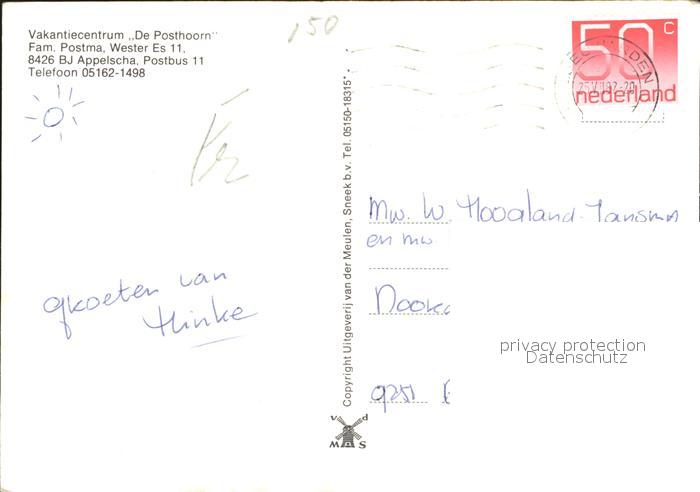 Vakantiecentrum „De Posthoorn"
Fam. Postma, Wester Es 11,
8426 BJ Appelscha, Postbus 11
Telefoon 05162-1498
150
50 c
nederland
groeten van
Hinke
Copyright Uitgeverij van der Meulen, Sneek b.v. Tel. 05150-18315*
v d
M S
Mw. W. Hoogland-Jansma
en mw.
9251
privacy protection
Datenschutz